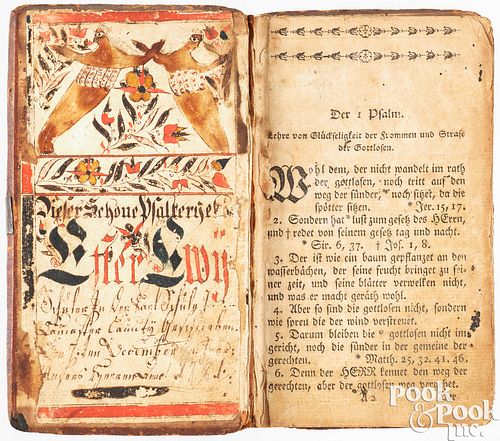 Dieser Schöne Psalter
Ester Ewy
Schüler In der
Lancaster County Geschrieben
den December
Der 1 Psalm.
Lehre von Glückseligkeit der Frommen und Strafe
der Gottlosen.
Wohl dem, der nicht wandelt im rath
der gottlosen, noch tritt auf den
weg der sünder, * noch sitzt, da die
spötter sitzen. * Jer. 15, 17.
2. Sondern hat * lust zum gesetz des HErrn,
und † redet von seinem gesetz tag und nacht.
* Sir. 6, 37. † Jos. 1, 8.
3. Der ist wie ein baum gepflanzet an den
wasserbächen, der seine frucht bringet zu sei-
ner zeit, und seine blätter verwelken nicht,
und was er macht geräth wohl.
4. Aber so sind die gottlosen nicht, sondern
wie spreu die der wind verstreuet.
5. Darum bleiben die * gottlosen nicht im
gericht, noch die sünder in der gemeine der
gerechten. * Matth. 25, 32. 41. 46.
6. Denn der HERR kennet den weg der
gerechten, aber der gottlosen weg vergehet.
A 2 Der
Pook &
Pook
Inc.